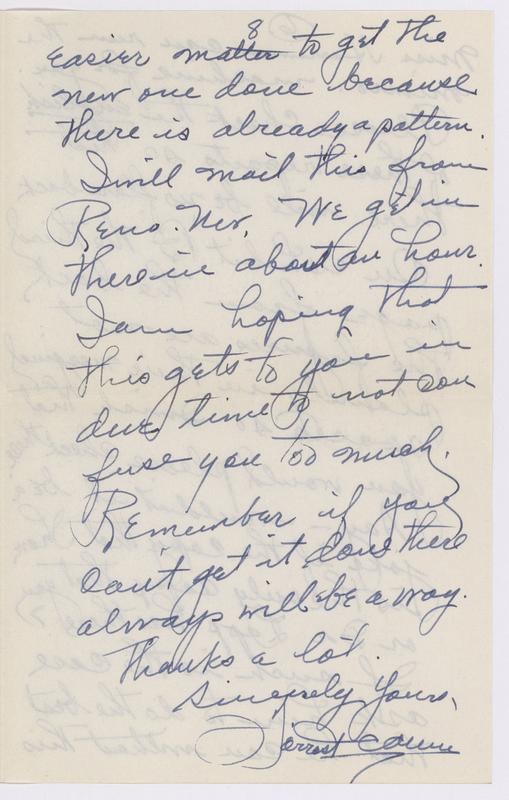 8
easier matter to get the
new one done because
there is already a pattern.
I will mail this from
Reno. Nev. We get in
there in about an hour.
I am hoping that
this gets to you in
due time to not con
fuse you too much.
Remember if you
can't get it done there
always will be a way.
Thanks a lot.
Sincerely Yours,
Forrest